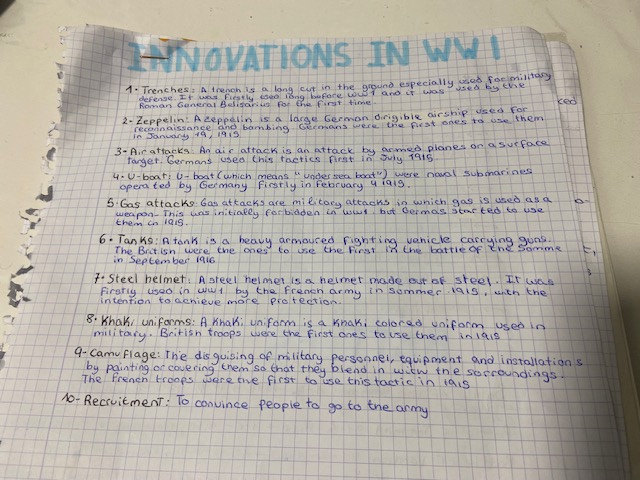 INNOVATIONS IN WW1
1- Trenches: A trench is a long cut in the ground especially used for military
defense. It was firstly used long before WW1 and it was used by the
Roman General Belisarius for the first time.
2- Zeppelin: A zeppelin is a large German dirigible airship used for
reconnaissance and bombing. Germans were the first ones to use them
in January 19, 1915
3- Air attacks: An air attack is an attack by armed planes on a surface
target. Germans used this tactics first in July 1915
4- U-boat: U-boat (which means "undersea boat") were naval submarines
operated by Germany firstly in February 4, 1915.
5- Gas attacks: Gas attacks are military attacks in which gas is used as a
weapon. This was initially forbidden in WW1 but Germans started to use
them in 1915
6- Tanks: A tank is a heavy armoured fighting vehicle carrying guns.
The British were the ones to use the first in the battle of the Somme
in September 1916
7- Steel helmet: A steel helmet is a helmet made out of steel. It was
firstly used in WW1 by the French army in sommer 1915, with the
intention to achieve more protection.
8- Khaki uniforms: A Khaki uniform is a khaki colored uniform used in
military. British troops were the first ones to use them in 1915
9- Camuflage: The disguising of military personnel, equipment and installations
by painting or covering them so that they blend in with the sorroundings.
The french troops were the first to use this tactic in 1915
10- Recruitment: To convince people to go to the army